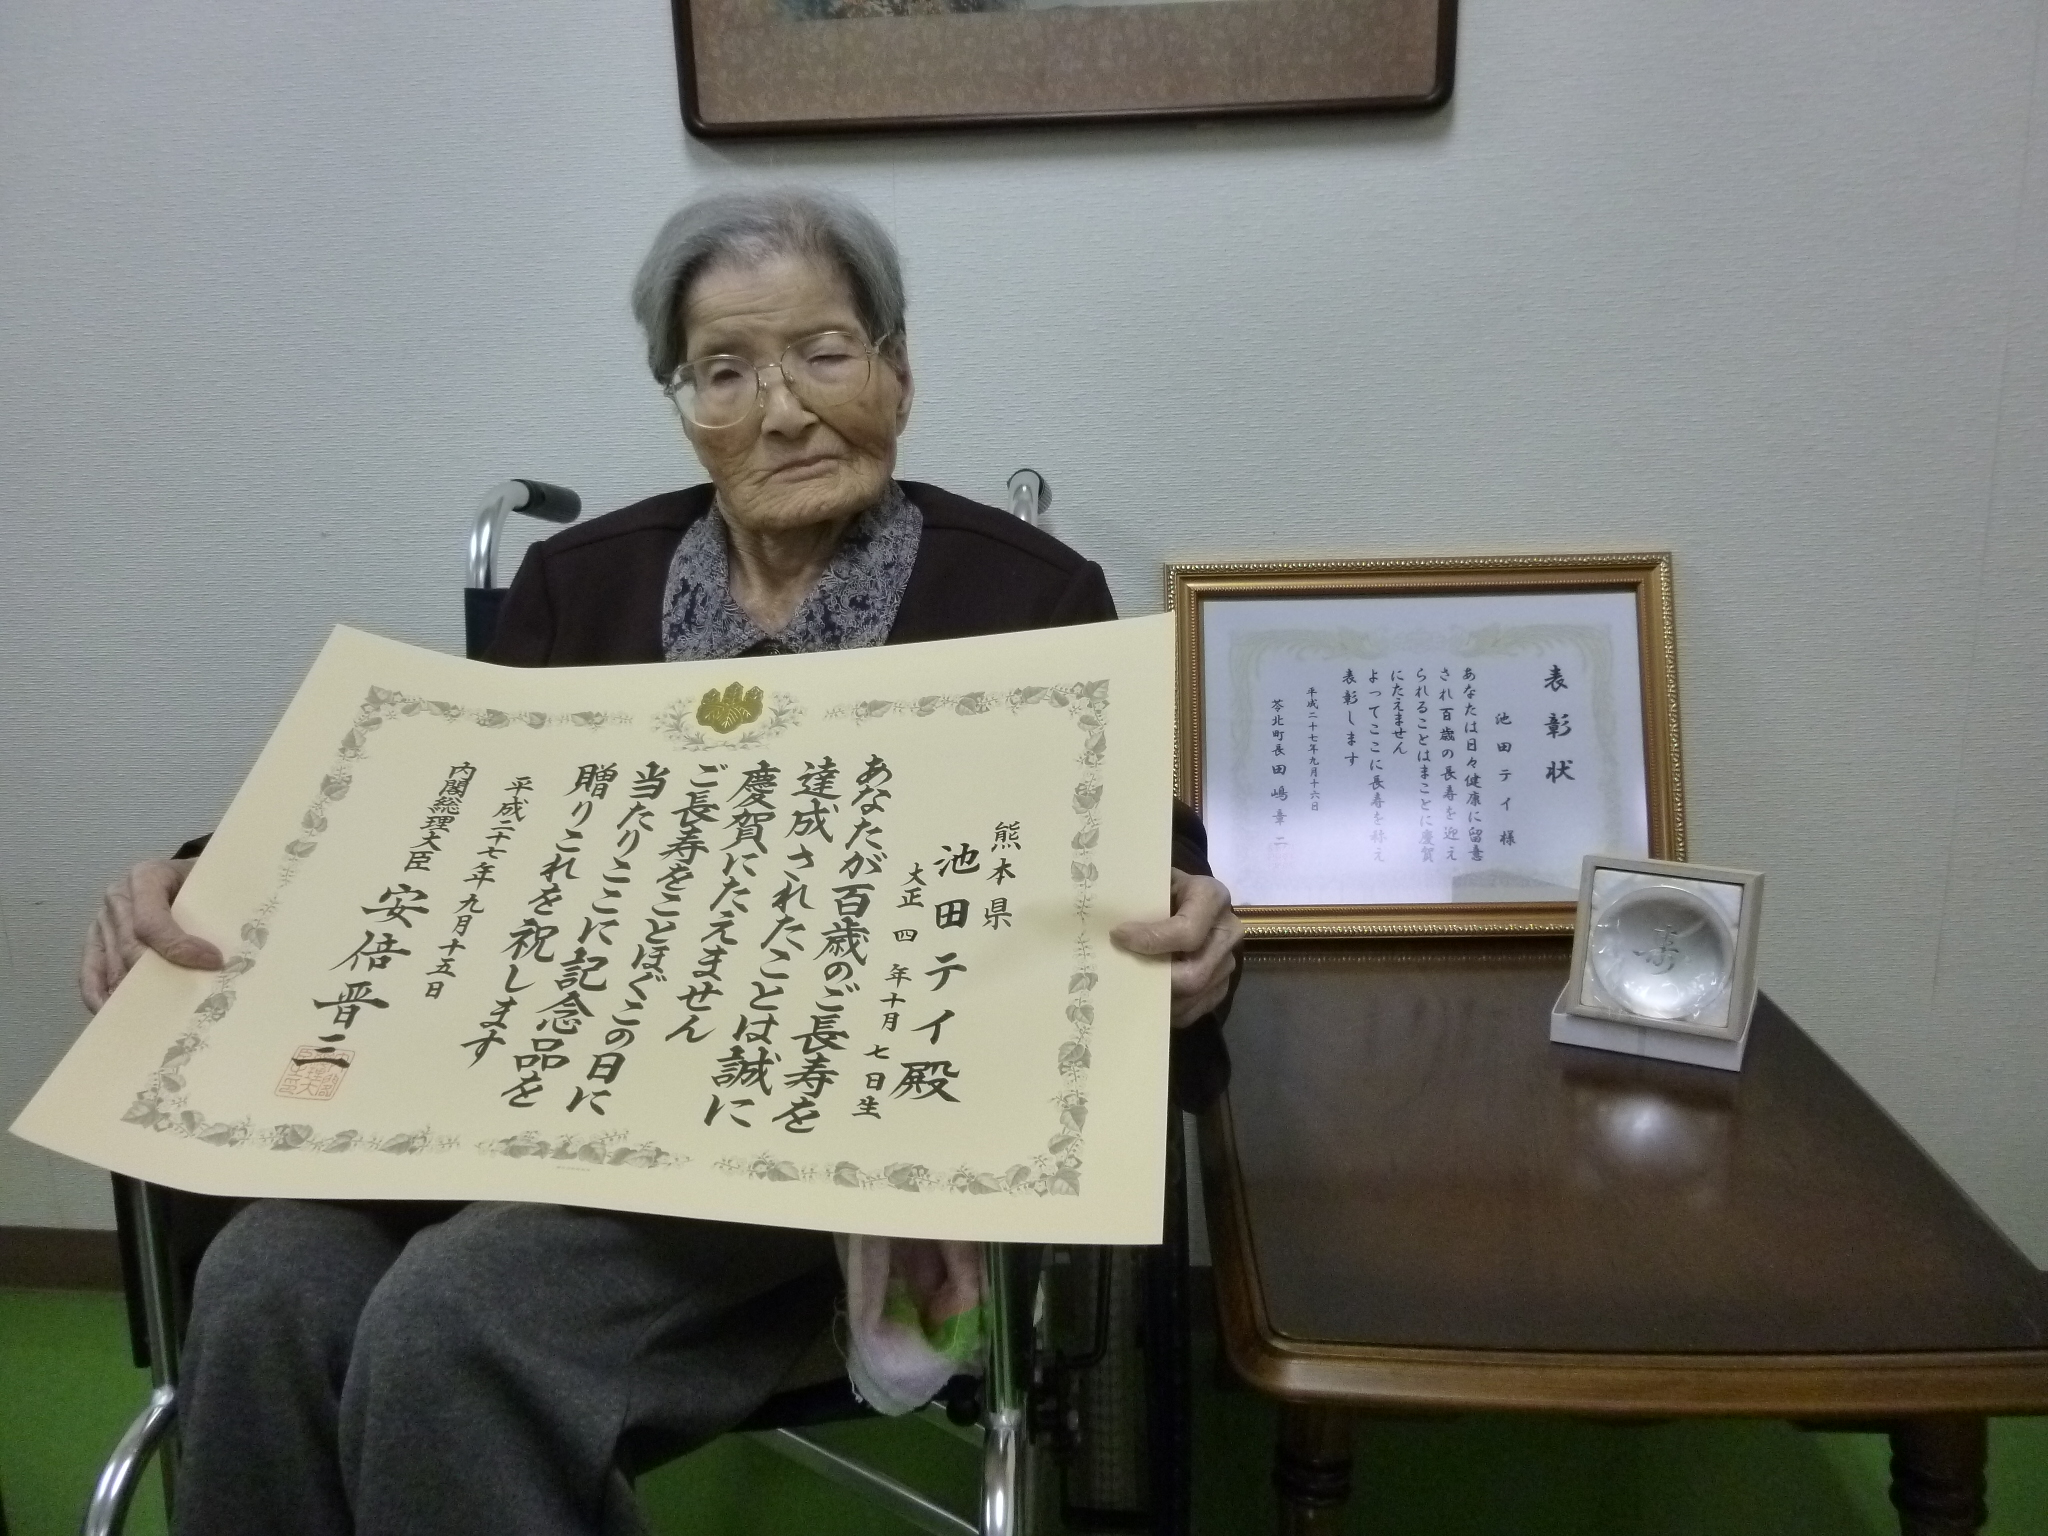 熊本県
池田テイ殿
大正四年十月七日生
あなたが百歳のご長寿を
達成されたことは誠に
慶賀にたえません
ご長寿をことほぐこの日に
当たりここに記念品を
贈りこれを祝します
平成二十七年九月十五日
内閣総理大臣 安倍晋三
表彰状
池田テイ様
あなたは日々健康に留意
され百歳の長寿を迎え
られることはまことに慶賀
にたえません
よってここに長寿を称え
表彰します
平成二十七年九月十六日
苓北町長田嶋章二
寿